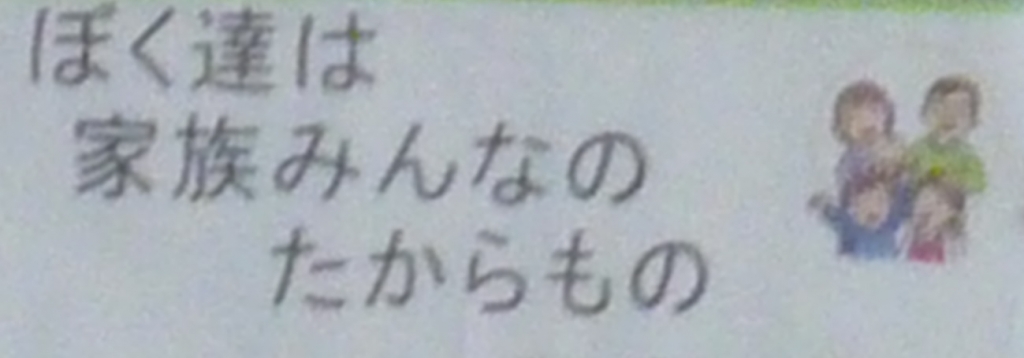 ぼく達は
家族みんなの
たからもの